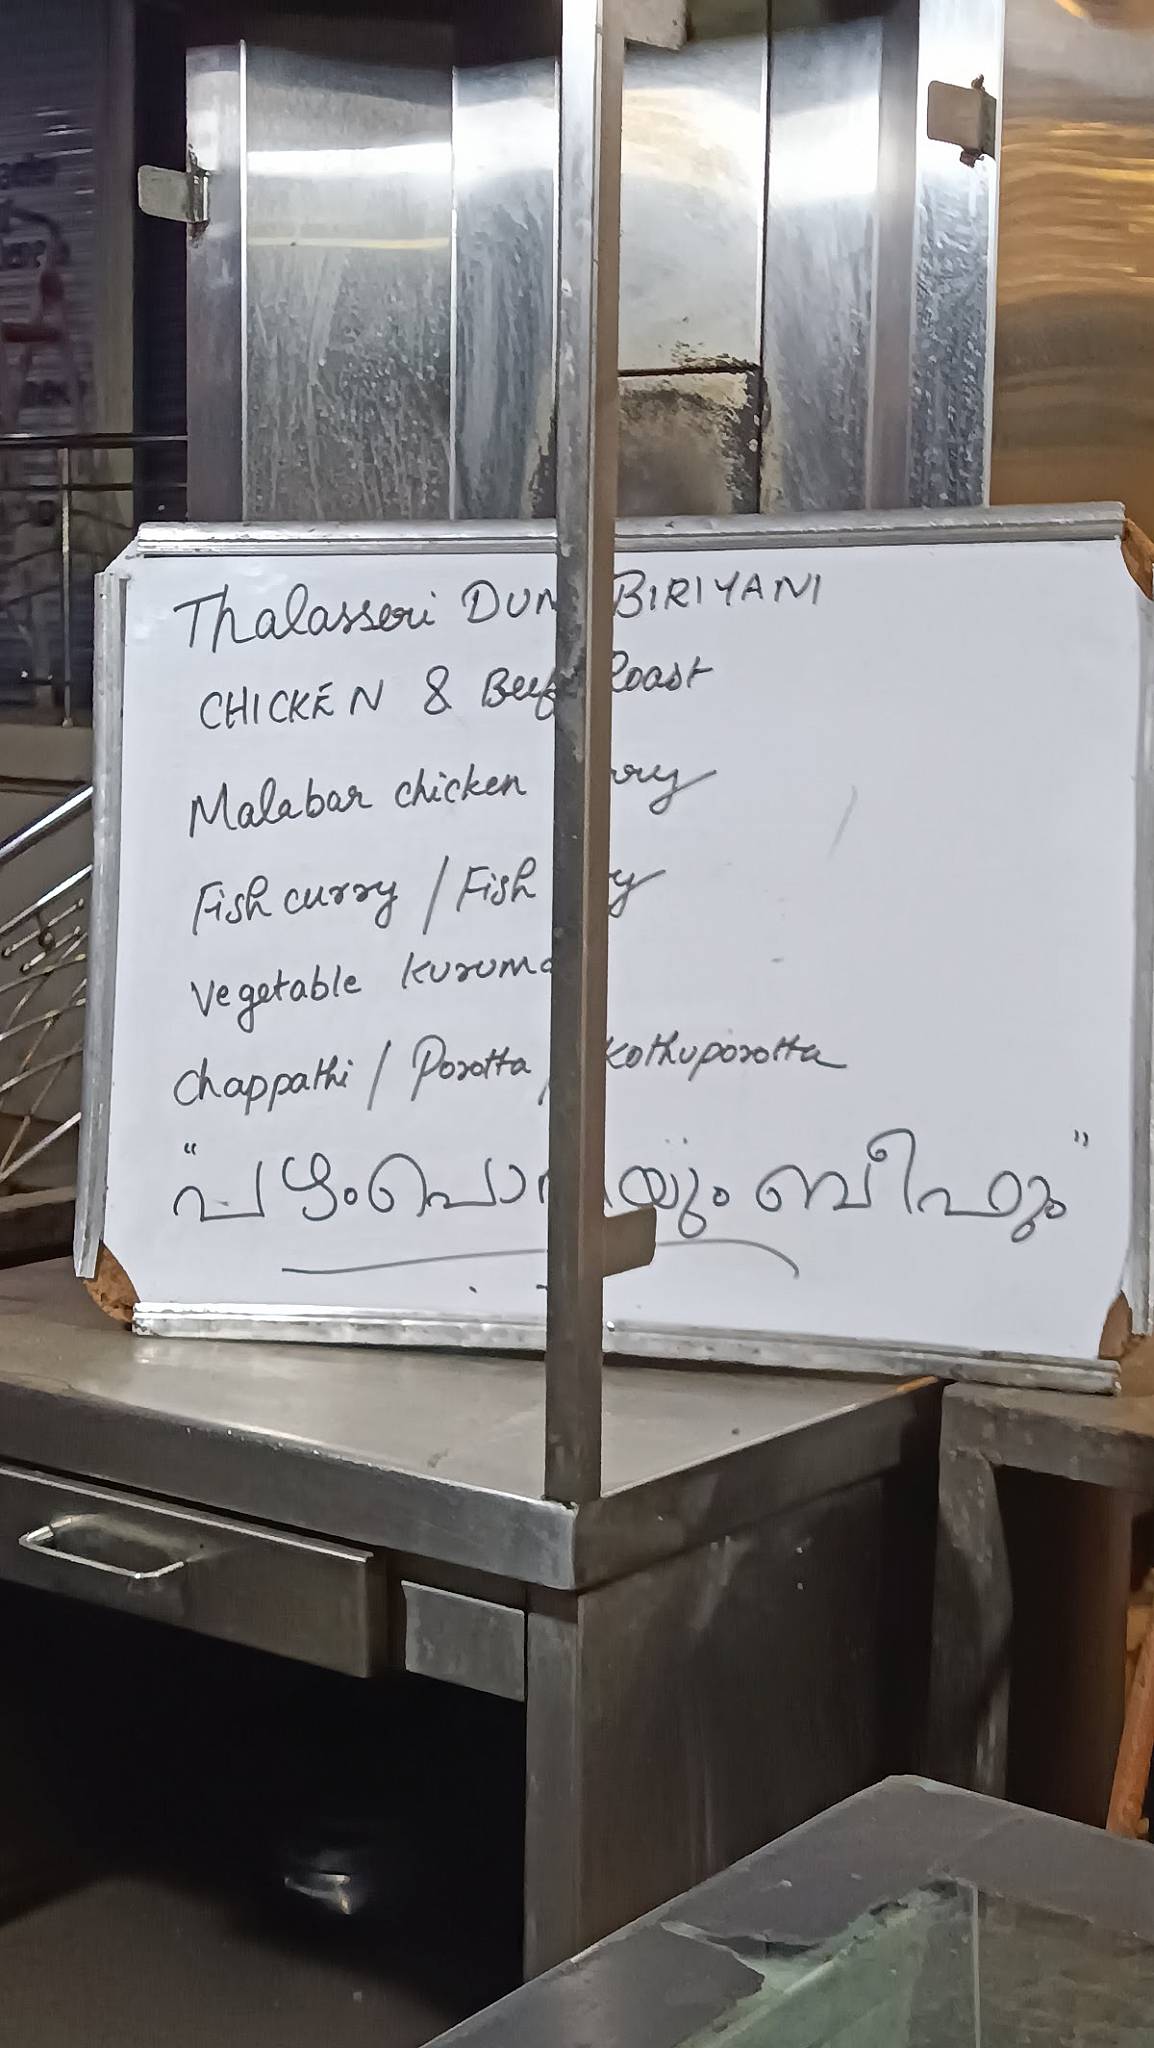 Thalasseri DUM BIRIYANI
CHICKEN & Beef Roast
Malabar chicken curry
Fish curry / Fish
Vegetable kuruma
Chappathi / Porotta / Kothuporotta
"പഴംപൊരിയും ബീഫും"